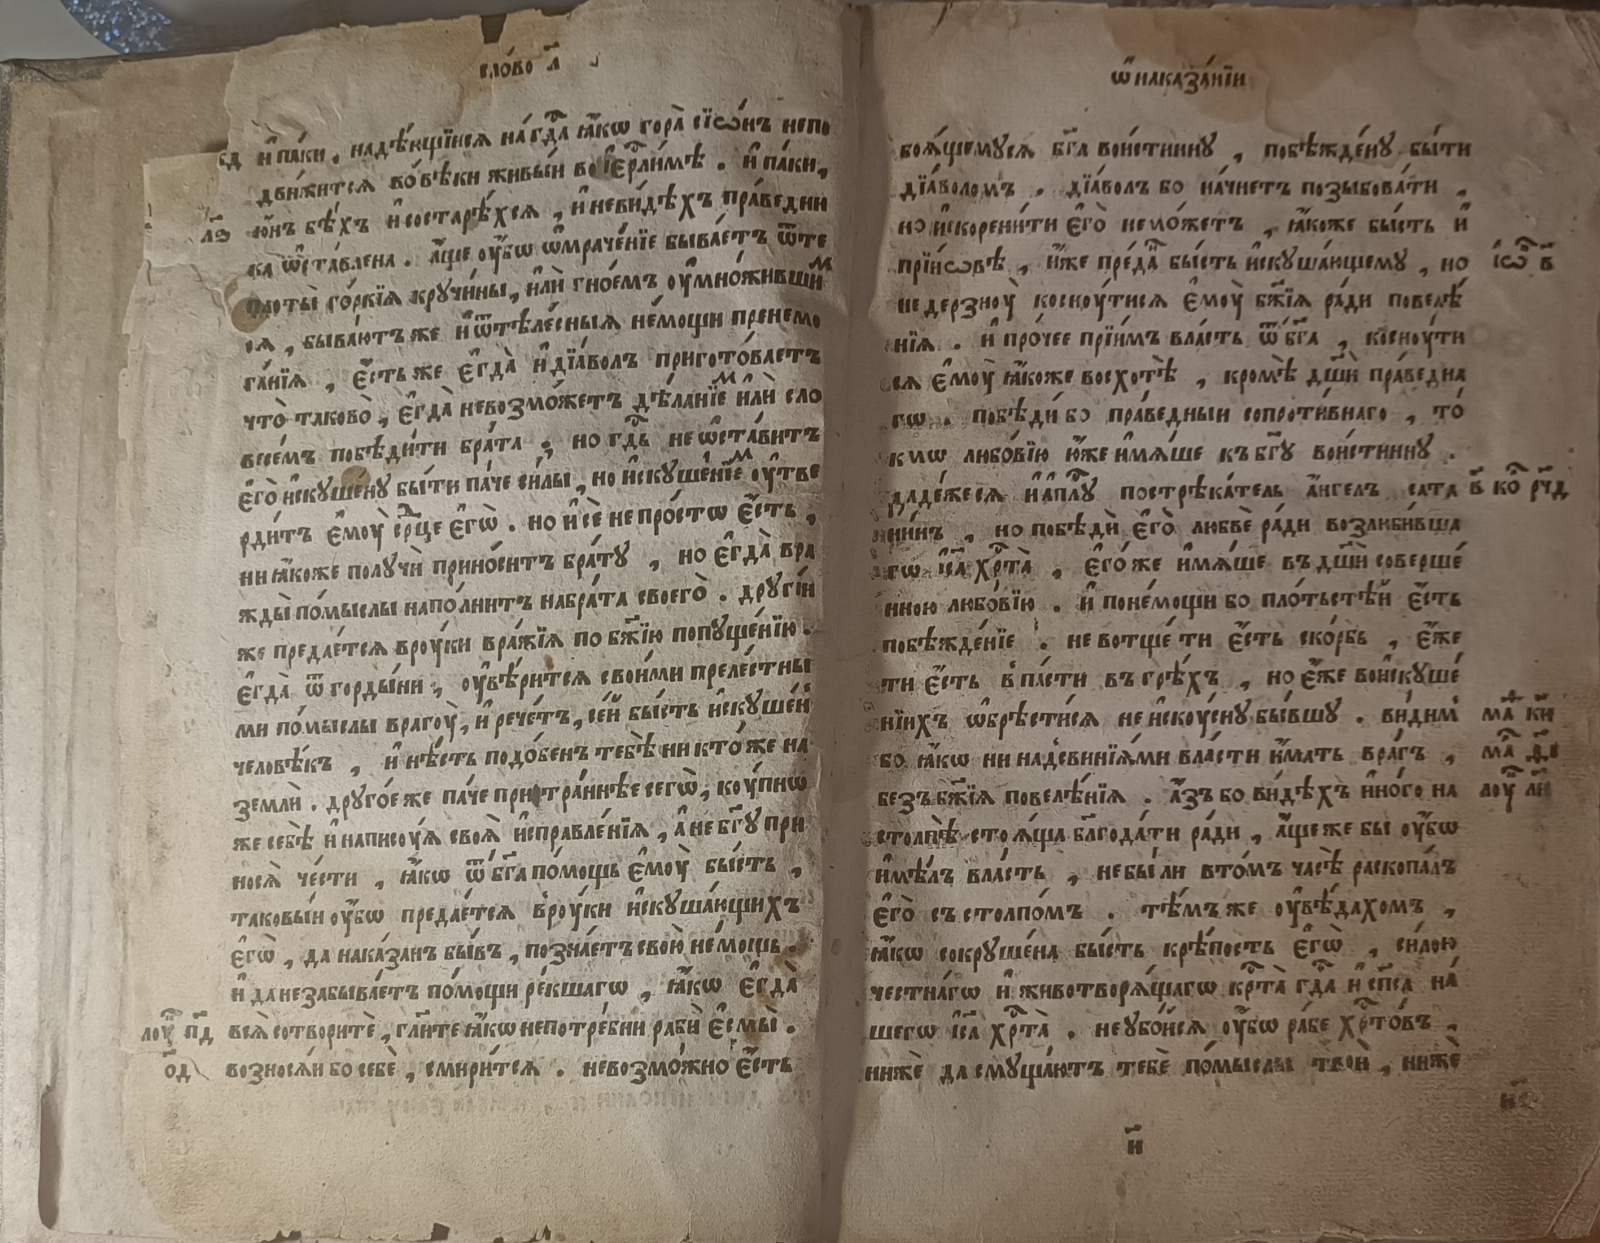 сло́во а҃
к҃д и҆ па́ки . надѣ́ющїися на́ гд҇а ꙗ҆́кѡ гора̀ сїѡ́нъ непо
дви́жится во́ вѣки живы́и во і҆ерⷭ҇ли́мѣ . и҆ па́ки,
л҃ѕ ю҆́нъ бѣ́хъ и҆ состарѣ́хся , и҆ неви́дѣхъ пра́ведни
ка ѡ҆ста́влена . а҆́ще оу҆́бѡ ѡ҆мраче́нїе быва́етъ ѿ те
плоты̀ го́ркїѧ кручи́ны , и҆лѝ гно́емъ оу҆мно́жившим
ся , быва́ютъ же и҆ ѿ тѣле́сныѧ не́мощи пренемо
га́нїѧ , є҆́сть же є҆гда̀ и҆ дїа́волъ приготовлѧ́етъ
что̀ таково̀ , є҆гда̀ невозмо́жетъ дѣ́ланїем и҆лѝ сло
весе́мъ побѣди́ти бра́та ; но гд҇ь не ѡ҆ста́витъ
є҆го̀ и҆скуше́ну бы́ти па́че си́лы , но и҆скуше́нїем оу҆тве
рди́тъ є҆моу̀ срⷣце є҆гѡ̀ . но и҆ сѐ не про́стѡ є҆́сть ,
ни ꙗ҆́коже получѝ прино́ситъ бра́ту , но є҆гда̀ вра
жды̀ по́мыслы напо́лнитъ на бра́та своего̀ . други́и
же предае́тся в роу́ки вра́жїѧ по бж҃їю попуще́нїю .
є҆гда̀ ѿ горды́ни , оу҆вѣ́рится свои́ми преле́стны
ми по́мыслы врагоу̀ , и҆ рече́тъ , се́й бы́сть и҆скуше́нъ
человѣ́къ , и҆ нѣ́сть подо́бенъ тебѣ̀ никто́же на
землѝ . друго́е же па́че пристра́ннѣе сегѡ̀ , коу́пнѡ
же себѣ̀ и҆ написоу́ѧ своѧ̀ и҆справле́нїѧ , а҆ не бг҃у при
носѧ̀ че́сти , ꙗ҆́кѡ ѿ бг҃а по́мощь є҆моу̀ бы́сть ,
таковы́и оу҆́бѡ предае́тся в роу́ки и҆скуша́ющихъ
є҆гѡ̀ , да нака́занъ бы́въ , позна́етъ свою̀ не́мощь .
и҆ да незабыва́етъ по́мощи ре́кшагѡ , ꙗ҆́кѡ є҆гда̀
лоу҇ п҃д всѧ̀ сотворитѐ , гл҃ите ꙗ҆́кѡ непотре́бни рабѝ є҆смы̀ .
о҃д возносѧ́и бо себѐ , смири́тся . невозмо́жно є҆́сть
ѡ҆ наказа́нїи
боѧ́щемуся бг҃а вои́стинну , побѣжде́ну бы́ти
дїа́воломъ . дїа́волъ бо на́чнетъ позыбова́ти ,
но и҆скорени́ти є҆го̀ не мо́жетъ , ꙗ҆́коже бы́сть и҆
при і҆́ѡвѣ , и҆́же преда́нъ бы́сть и҆скуша́ющему , но і҆ѡ҇ в҃
не дерзноу̀ косноу́тися є҆моу̀ бж҃їѧ ра́ди повелѣ́
нїѧ . и҆ про́чее прїи́мъ вла́сть ѿ бг҃а , косноу́ти
ся є҆моу̀ ꙗ҆́коже восхотѣ̀ , кромѣ̀ дш҃и пра́ведна
гѡ . побѣди́ бо пра́ведныи сопроти́внаго , то́
кмѡ любо́вїю ю҆́же и҆мѧ́ше къ бг҃у вои́стинну .
даде́жеся и҆ а҆пⷭ҇лу пострѣка́тель а҆́нгелъ сата в҃ ко҇ рч҃д
нинъ , но побѣдѝ є҆го̀ любвѐ ра́ди возлюби́вша
гѡ і҆с҃а хрⷭ҇та̀ , є҆го́же и҆мѧ́ше въ дш҃и соверше́
нною любо́вїю . и҆ по не́мощи бо пло́тьстѣй є҆́сть
побѣжде́нїе . не вотще́ ти є҆́сть ско́рбь , є҆́же
ти є҆́сть в па́сти въ грѣ́хъ , но є҆́же во и҆скуше́
нїихъ ѡ҆брѣ́стися не и҆скоу́сну бы́вшу . ви́дим мат҇ к҃и
бо ꙗ҆́кѡ ни над свинїѧ́ми вла́сти и҆́мать вра́гъ ,
без бж҃їѧ повелѣ́нїѧ . а҆́зъ бо ви́дѣхъ и҆но́го на
столпѣ̀ стоѧ́ща благода́ти ра́ди , а҆́ще же бы оу҆́бѡ
и҆мѣ́лъ вла́сть , не бы́ ли в то́мъ часѣ̀ раскопа́лъ
є҆го̀ съ столпо́мъ . тѣ́мъ же оу҆вѣ́дахомъ ,
ꙗ҆́кѡ сокруше́на бы́сть крѣ́пость є҆гѡ̀ , си́лою
честна́гѡ и҆ животворѧ́щагѡ крⷭ҇та̀ гд҇а и҆ сп҃са на́
шегѡ і҆с҃а хрⷭ҇та̀ . не убо́йся оу҆́бѡ ра́бе хрⷭ҇то́въ ,
нижѐ да смуща́ютъ тебѐ по́мыслы твоѝ , нижѐ
и҃